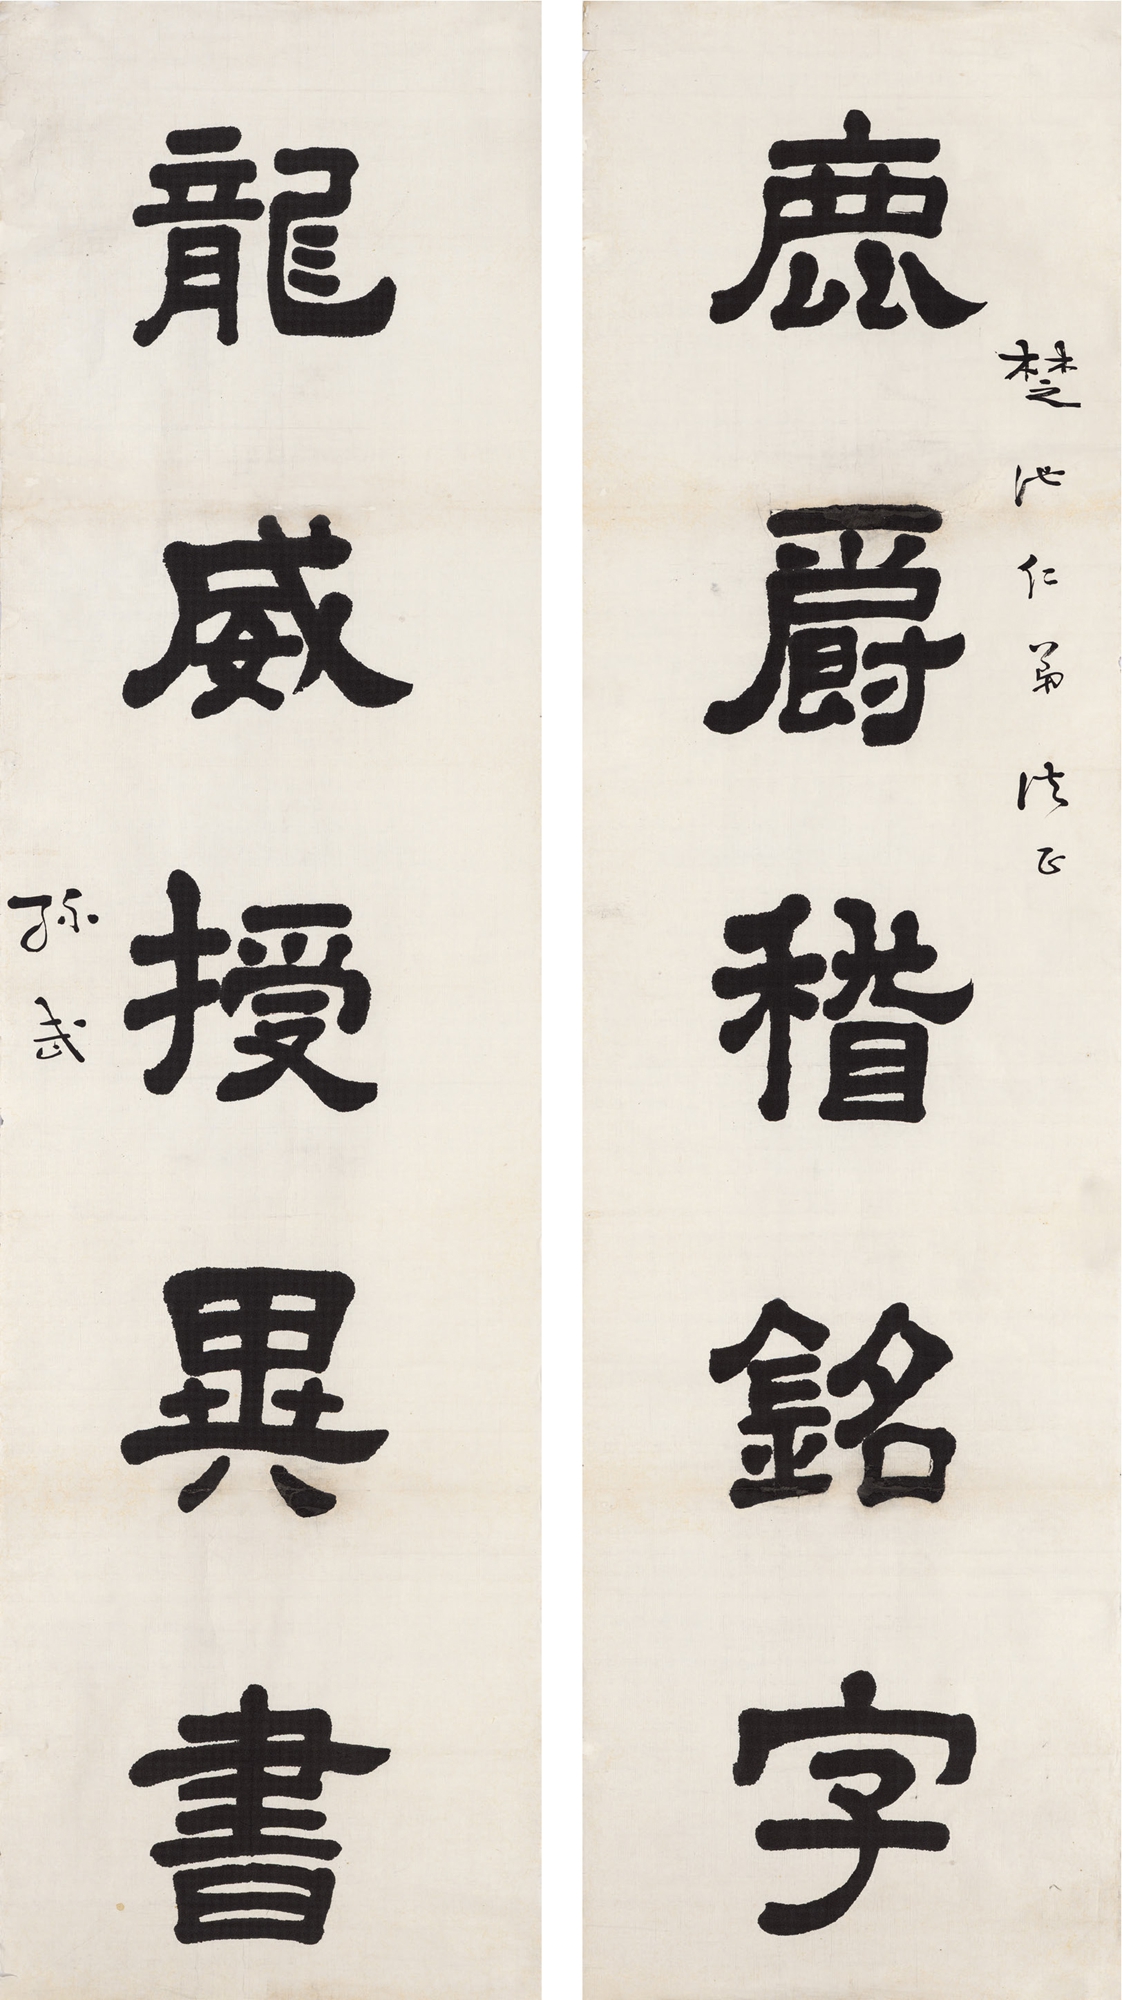 鹿爵稽銘字
楚池仁弟法正
龍威授異書
孫武